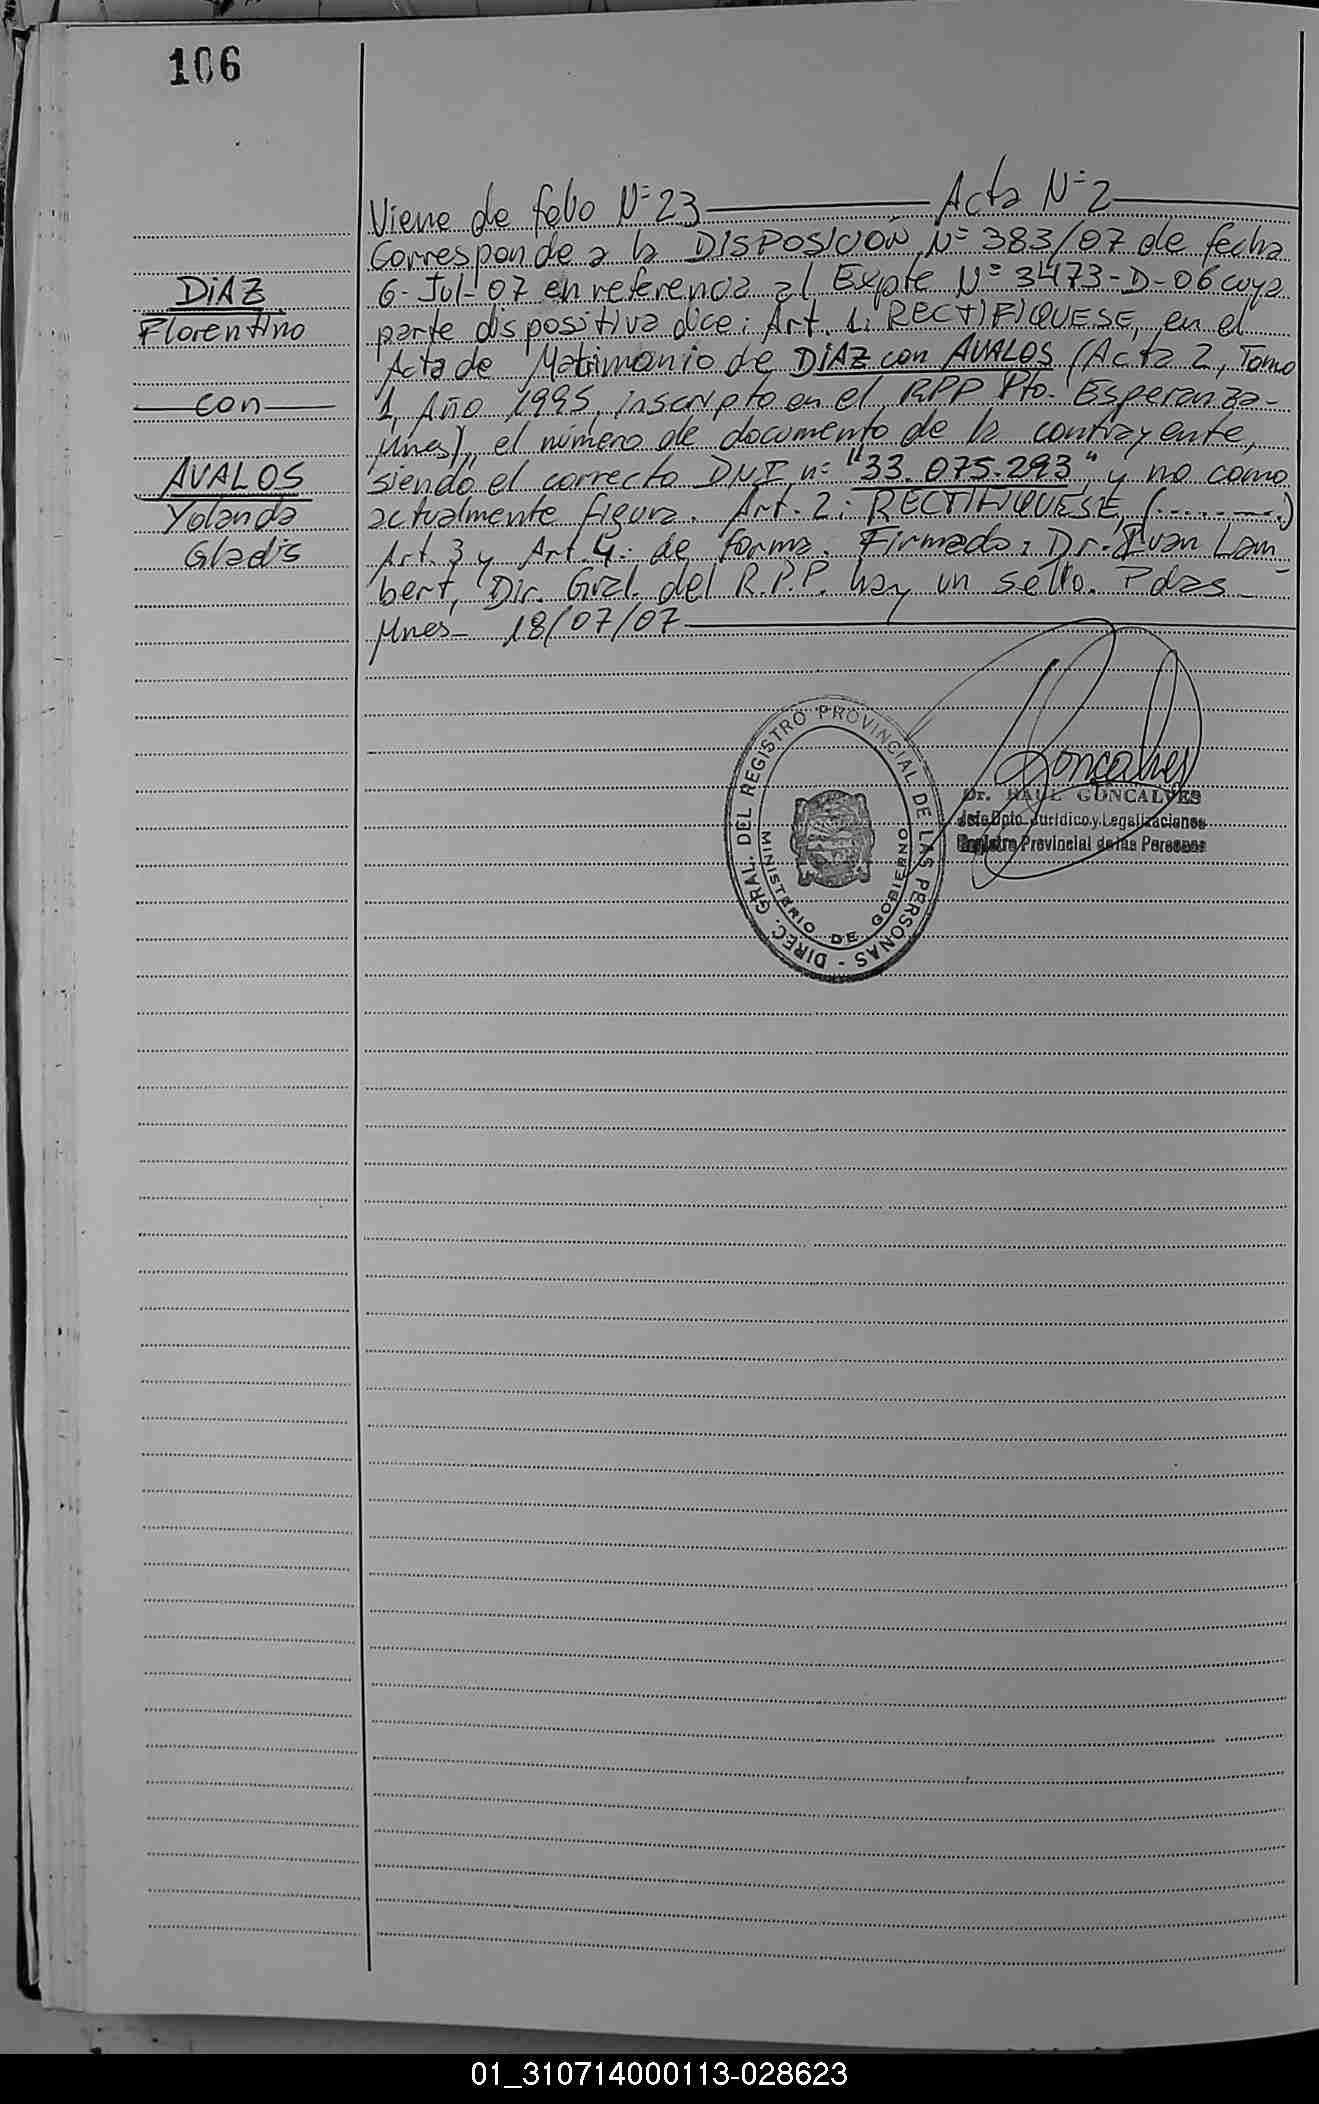 106
Viene de folio Nº 23 — Acta Nº 2 —
Corresponde a la DISPOSICIÓN Nº 383/07 de fecha
6-Jul-07 en referencia al Expte Nº 3473-D-06 cuya
parte dispositiva dice: Art. 1: RECTIFIQUESE, en el
Acta de Matrimonio de DIAZ con AVALOS (Acta 2, Tomo
1, Año 1995, inscripto en el RPP Pto. Esperanza-
Mnes), el número de documento de la contrayente,
siendo el correcto DNI nº "33.075.293" y no como
actualmente figura. Art. 2: RECTIFIQUESE, (........)
Art. 3 y Art. 4: de forma. Firmado: Dr. Ivan Lam-
bert, Dir. Gral. del R.P.P. hay un sello. Pdas-
Mnes- 18/07/07 —
DIAZ
Florentino
— con —
AVALOS
Yolanda
Gladis
DIREC. GRAL. DEL REGISTRO PROVINCIAL DE LAS PERSONAS -
MINISTERIO DE GOBIERNO
Goncalves
Dr. RAUL GONCALVES
Jefe Dpto. Jurídico y Legalizaciones
Registro Provincial de las Personas
01_310714000113-028623